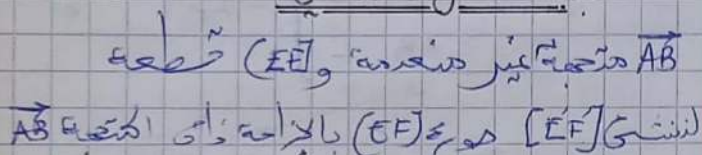 $\overrightarrow{AB}$ متجهة غير منعدمة و [EF] قطعة
لننشئ [E'F'] صورة [EF] بالإزاحة ذات المتجهة $\overrightarrow{AB}$